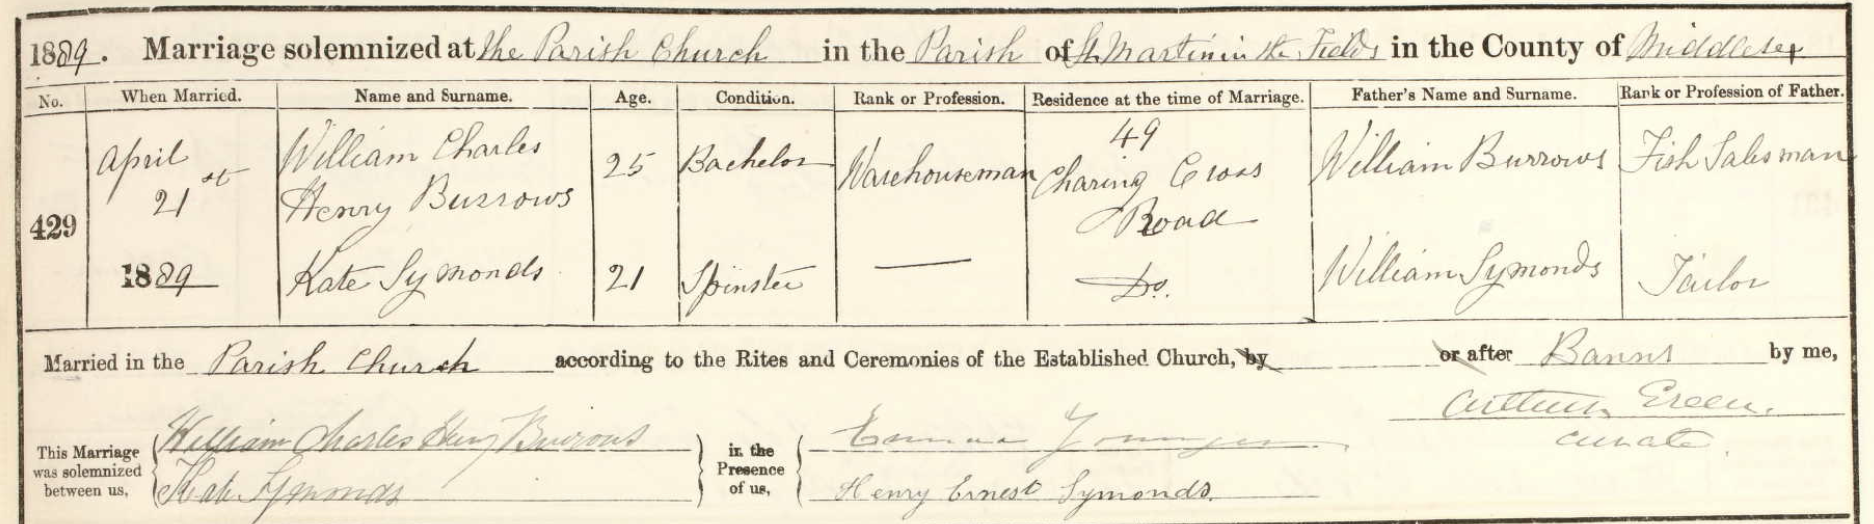 1889. Marriage solemnized at the Parish Church in the Parish of St Martin in the Fields in the County of Middlesex
No. When Married. Name and Surname. Age. Condition. Rank or Profession. Residence at the time of Marriage. Father's Name and Surname. Rank or Profession of Father.
429
April
21st
1889
William Charles
Henry Burrows
25
Bachelor
Warehouseman
49
Charing Cross
Road
William Burrows
Fish Salesman
Kate Symonds
21
Spinster
—
Do.
William Symonds
Tailor
Married in the Parish Church according to the Rites and Ceremonies of the Established Church, by or after Banns by me,
Arthur Green,
Curate.
This Marriage
was solemnized
between us,
William Charles Henry Burrows
Kate Symonds
in the
Presence
of us,
Emma
Henry Ernest Symonds.